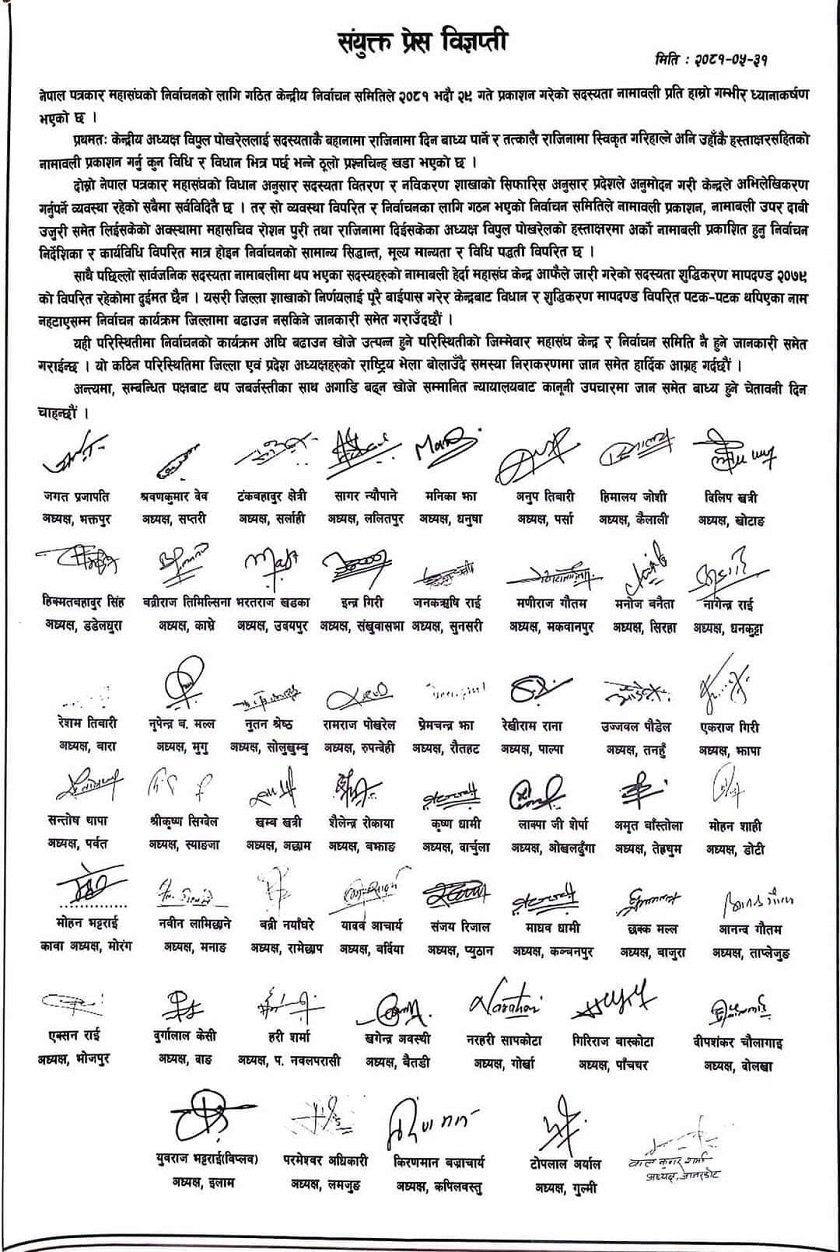 संयुक्त प्रेस विज्ञप्ती
मिति : २०८१-०५-३१
नेपाल पत्रकार महासंघको निर्वाचनको लागि गठित केन्द्रीय निर्वाचन समितिले २०८१ भदौ २९ गते प्रकाशन गरेको सदस्यता नामावली प्रति हाम्रो गम्भीर ध्यानाकर्षण
भएको छ ।
प्रथमतः केन्द्रीय अध्यक्ष विपुल पोखरेललाई सदस्यताकै बहानामा राजिनामा दिन बाध्य पार्ने र तत्कालै राजिनामा स्विकृत गरिहाल्ने अनि उहाँकै हस्ताक्षरसहितको
नामावली प्रकाशन गर्नु कुन विधि र विधान भित्र पर्छ भन्ने ठूलो प्रश्नचिन्ह खडा भएको छ ।
दोश्रो नेपाल पत्रकार महासंघको विधान अनुसार सदस्यता वितरण र नविकरण शाखाको सिफारिस अनुसार प्रदेशले अनुमोदन गरी केन्द्रले अभिलेखिकरण
गर्नुपर्ने व्यवस्था रहेको सबैमा सर्वविदितै छ । तर सो व्यवस्था विपरित र निर्वाचनका लागि गठन भएको निर्वाचन समितिले नामावली प्रकाशन, नामाबली उपर दाबी
उजुरी समेत लिईसकेको अवस्थामा महासचिव रोशन पुरी तथा राजिनामा दिईसकेका अध्यक्ष विपुल पोखरेलको हस्ताक्षरमा अर्को नामाबली प्रकाशित हुनु निर्वाचन
निर्देशिका र कार्यविधि विपरित मात्र होइन निर्वाचनको सामान्य सिद्धान्त, मूल्य मान्यता र विधि पद्धती विपरित छ ।
साथै पछिल्लो सार्वजनिक सदस्यता नामाबलीमा थप भएका सदस्यहरुको नामाबली हेर्दा महासंघ केन्द्र आफैले जारी गरेको सदस्यता शुद्धिकरण मापदण्ड २०७९
को विपरित रहेकोमा दुईमत छैन । यसरी जिल्ला शाखाको निर्णयलाई पूरै बाईपास गरेर केन्द्रबाट विधान र शुद्धिकरण मापदण्ड विपरित पटक-पटक थपिएका नाम
नहटाएसम्म निर्वाचन कार्यक्रम जिल्लामा बढाउन नसकिने जानकारी समेत गराउँदछौं ।
यही परिस्थितिमा निर्वाचनको कार्यक्रम अघि बढाउन खोजे उत्पन्न हुने परिस्थितीको जिम्मेवार महासंघ केन्द्र र निर्वाचन समिति नै हुने जानकारी समेत
गराईन्छ । यो कठिन परिस्थितिमा जिल्ला एवं प्रदेश अध्यक्षहरुको राष्ट्रिय भेला बोलाउँदै समस्या निराकरणमा जान समेत हार्दिक आग्रह गर्दछौं ।
अन्त्यमा, सम्बन्धित पक्षबाट थप जबर्जस्तीका साथ अगाडि बढ्न खोजे सम्मानित न्यायालयबाट कानूनी उपचारमा जान समेत बाध्य हुने चेतावनी दिन
चाहन्छौं ।
जगत प्रजापति श्रवणकुमार देव टंकबहादुर क्षेत्री सागर न्यौपाने मनिका झा अनुप तिवारी हिमालय जोशी दिलिप खत्री
अध्यक्ष, भक्तपुर अध्यक्ष, सप्तरी अध्यक्ष, सर्लाही अध्यक्ष, ललितपुर अध्यक्ष, धनुषा अध्यक्ष, पर्सा अध्यक्ष, कैलाली अध्यक्ष, खोटाङ
हिक्मतबहादुर सिंह बद्रीराज तिमिल्सिना भरतराज खड्का इन्द्र गिरी जनकऋषि राई मणीराज गौतम मनोज बनैता नागेन्द्र राई
अध्यक्ष, डडेलधुरा अध्यक्ष, काभ्रे अध्यक्ष, उदयपुर अध्यक्ष, संखुवासभा अध्यक्ष, सुनसरी अध्यक्ष, मकवानपुर अध्यक्ष, सिरहा अध्यक्ष, धनकुटा
रेशम तिवारी नृपेन्द्र ब. मल्ल नुतन श्रेष्ठ रामराज पोखरेल प्रेमचन्द्र झा रेखीराम राना उज्जवल पौडेल एकराज गिरी
अध्यक्ष, बारा अध्यक्ष, मुगु अध्यक्ष, सोलुखुम्बु अध्यक्ष, रुपन्देही अध्यक्ष, रौतहट अध्यक्ष, पाल्पा अध्यक्ष, तनहुँ अध्यक्ष, झापा
सन्तोष थापा श्रीकृष्ण सिग्देल खम्ब खत्री शैलेन्द्र रोकाया कृष्ण धामी लाक्पा जी शेर्पा अमृत बाँस्तोला मोहन शाही
अध्यक्ष, पर्वत अध्यक्ष, स्याङजा अध्यक्ष, अछाम अध्यक्ष, बझाङ अध्यक्ष, दार्चुला अध्यक्ष, ओखलढुंगा अध्यक्ष, तेह्रथुम अध्यक्ष, डोटी
मोहन भट्टराई नवीन लामिछाने बद्री नर्याघरे यादव आचार्य संजय रिजाल माधव धामी छक्क मल्ल आनन्द गौतम
कावा अध्यक्ष, मोरंग अध्यक्ष, मनाङ अध्यक्ष, रामेछाप अध्यक्ष, बर्दिया अध्यक्ष, प्युठान अध्यक्ष, कञ्चनपुर अध्यक्ष, बाजुरा अध्यक्ष, ताप्लेजुङ
एक्सन राई दुर्गालाल केसी हरी शर्मा खगेन्द्र अवस्थी नरहरी सापकोटा गिरिराज बास्कोटा दीपशंकर चौलागाइ
अध्यक्ष, भोजपुर अध्यक्ष, दाङ अध्यक्ष, प. नवलपरासी अध्यक्ष, बैतडी अध्यक्ष, गोर्खा अध्यक्ष, पाँचथर अध्यक्ष, दोलखा
युवराज भट्टराई(विप्लव) परमेश्वर अधिकारी किरणमान बज्राचार्य टोपलाल अर्याल
अध्यक्ष, इलाम अध्यक्ष, लमजुङ अध्यक्ष, कपिलवस्तु अध्यक्ष, गुल्मी